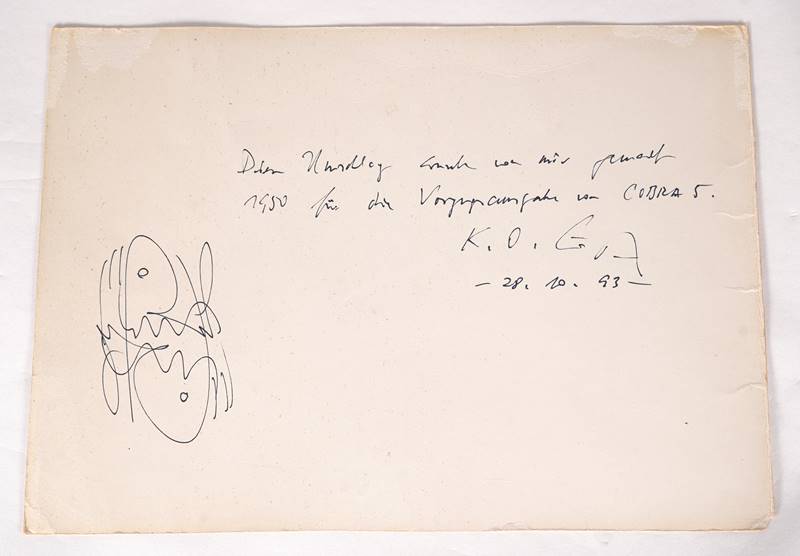 Dieser Umschlag wurde von mir gemacht
1950 für die Vorzugsausgabe von COBRA 5.
K. O. Götz
– 28. 10. 93 –